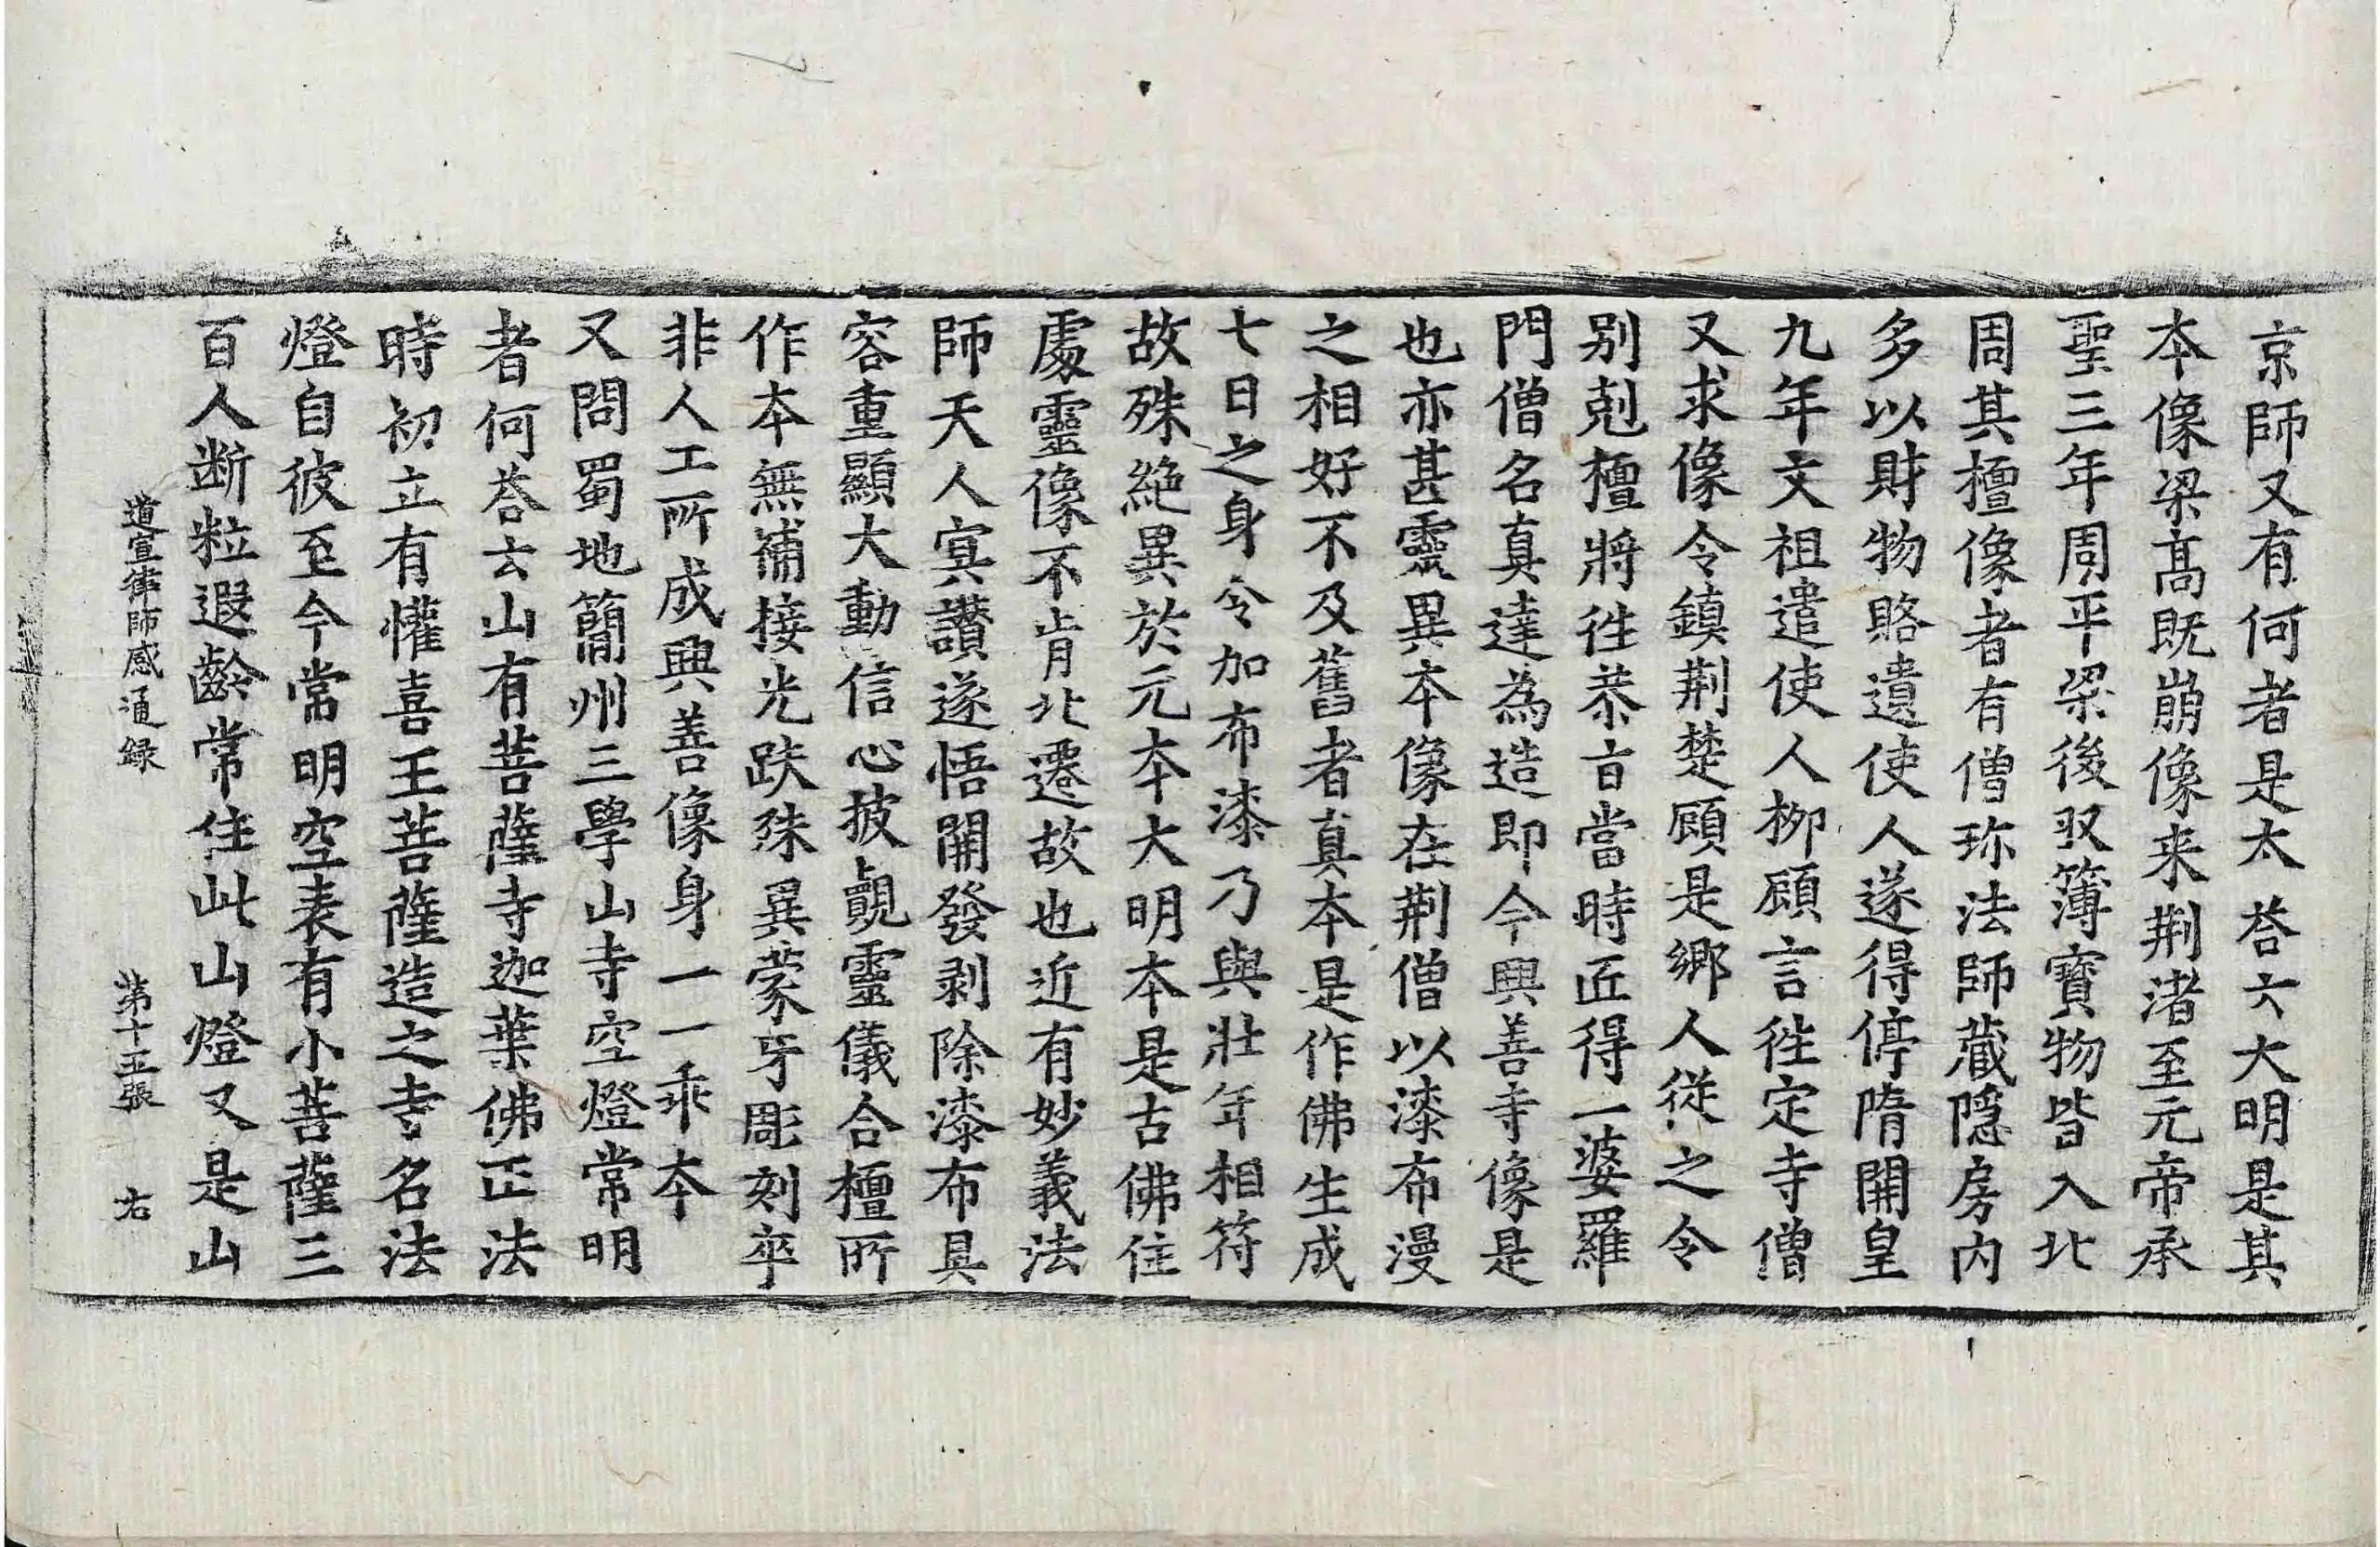 京師又有何者是太荅云大明是其
本像梁髙既崩像来荆渚至元帝承
聖三年周平梁後収簿寳物皆入北
周其檀像者有僧珎法師蔵隠房内
多以財物賂遺使人遂得停隋開皇
九年文祖遣使人柳顧言往定寺僧
又求像令鎮荆楚顧是鄉人從之令
别剋檀將往恭旨當時匠得一婆羅
門僧名真達為造即今興善寺像是
也亦甚靈異本像在荆僧以漆布漫
之相好不及舊者真本是作佛生成
七日之身令加布漆乃與壯年相符
故殊絶異於元本大明本是古佛住
處靈像不肯北遷故也近有妙義法
師天人㝠讃遂悟開發剥除漆布具
容重顯大動信心披覩靈儀合檀所
作本無補接光趺殊異蒙牙彫刻卒
非人工所成興善像身一一乖本
又問蜀地簡州三學山寺空燈常明
者何荅云山有菩薩寺迦葉佛正法
時初立有懽喜王菩薩造之寺名法
燈自彼至今常明空表有小菩薩三
百人断粒遐齡常住此山燈又是山
道宣律師感通録 第十五張 右